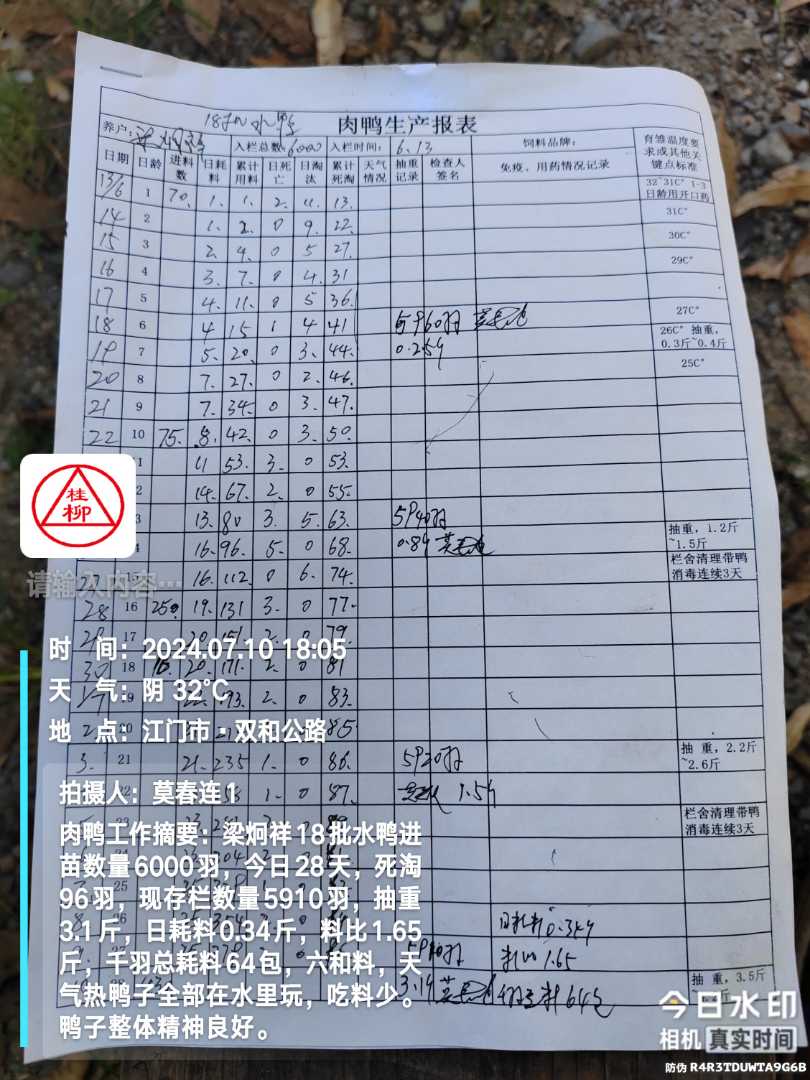 18批水鸭 肉鸭生产报表
养户: 入栏总数:6000 入栏时间:6.13 饲料品牌: 育雏温度要求或其他关键点标准
日期 日龄 进料数 日耗料 累计用料 日死亡 日淘汰 累计死淘 天气情况 抽重记录 检查人签名 免疫、用药情况记录
13/6 1 70. 1. 1. 2. 11. 13. 32~31C° 1-3日龄用开口药
14 2 1. 2. 0 9. 22. 31C°
15 3 2. 4. 0 5 27. 30C°
16 4 3. 7. 0 4. 31 29C°
17 5 4. 11. 0 5 36.
18 6 4 15 1 4 41 5960羽 27C°
19 7 5. 20. 0 3. 44. 0.25斤 26C° 抽重,0.3斤~0.4斤
20 8 7. 27. 0 2. 46. 25C°
21 9 7. 34. 0 3. 47.
22 10 75. 8. 42. 0 3. 50.
1 11 53. 3. 0 53.
2 14. 67. 2. 0 55.
3 13. 80 3. 5. 63. 5940羽 抽重,1.2斤~1.5斤
4 16. 96. 5. 0 68. 0.8斤
27 15 16. 112. 0 6. 74. 栏舍清理带鸭消毒连续3天
28 16 250 19. 131 3. 0 77.
17 20 151 2. 0 79.
18 20. 171 2. 0 81
19 93. 2. 0 83.
20 85.
3. 21 21. 235 1. 0 86. 5920羽 抽重,2.2斤~2.6斤
22 1. 0 87. 1.5斤
栏舍清理带鸭消毒连续3天
25
26 日耗料0.34斤
27 料比1.65
3.1斤 64包 抽重,3.5斤
桂柳
请输入内容…
时 间:2024.07.10 18:05
天 气:阴 32℃
地 点:江门市·双和公路
拍摄人:莫春连1
肉鸭工作摘要:梁炯祥18批水鸭进
苗数量6000羽,今日28天,死淘
96羽,现存栏数量5910羽,抽重
3.1斤,日耗料0.34斤,料比1.65
斤,千羽总耗料64包,六和料,天
气热鸭子全部在水里玩,吃料少。
鸭子整体精神良好。
今日水印
相机 真实时间
防伪 R4R3TDUWTA9G6B